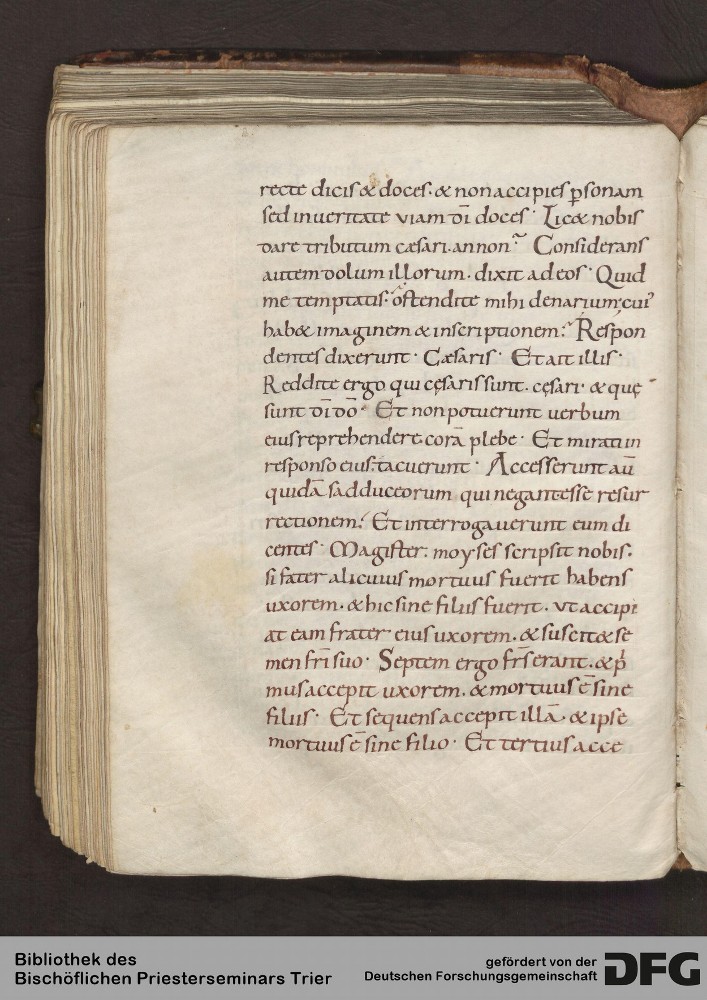 recte dicis & doces · & non accipies p̱sonam
sed in ueritate viam dī doces · Lic& nobis
dare tributum cæsari . an non · Considerans
autem dolum illorum . dixit ad eos · Quid
me temptatis : ostendite mihi denarium ; cui'
hab& imaginem & inscriptionem : Respon
dentes dixerunt · Cæsaris · Et ait illis ·
Reddite ergo qui cęsaris sunt . cęsari · & quę
sunt dī dō · Et non potuerunt uerbum
eius reprehendere corā plebe · Et mirati in
responso eius . tacuerunt · Accesserunt aū
quidā sadduceorum qui negant esse resur
rectionem . Et interrogauerunt eum di
centes · Magister : moyses scripsit nobis .
si fater alicuius mortuus fuerit habens
uxorem . & hic sine filiis fuerit . ut accipi
at eam frater eius uxorem . & suscit& se
men fr̄i suo · Septem ergo fr̄s erant . & pⁱ
mus accepit uxorem . & mortuus ē sine
filiis · Et sequens accepit illā . & ipse
mortuus ē sine filio · Et tertius acce
Bibliothek des
Bischöflichen Priesterseminars Trier
gefördert von der
Deutschen Forschungsgemeinschaft
DFG